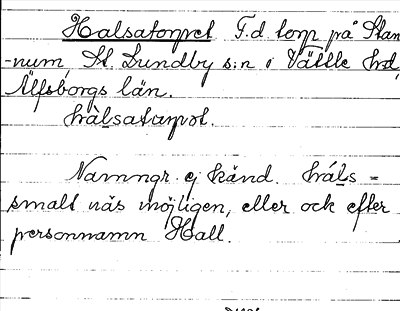 Halsatorpet F.d torp på Stan
-num, St. Lundby s:n i Vättle hd,
Älfsborgs län.
hàl̥satarpət.
Namngr. ej känd. hál̥s =
smalt näs möjligen, eller ock efter
personnamn Hall.